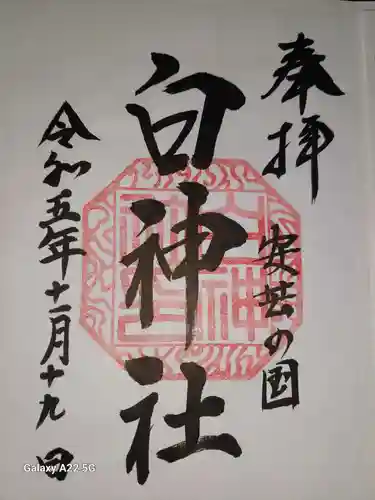 奉拝
安芸の国
白神社
令和五年十一月十九日
Galaxy A22 5G